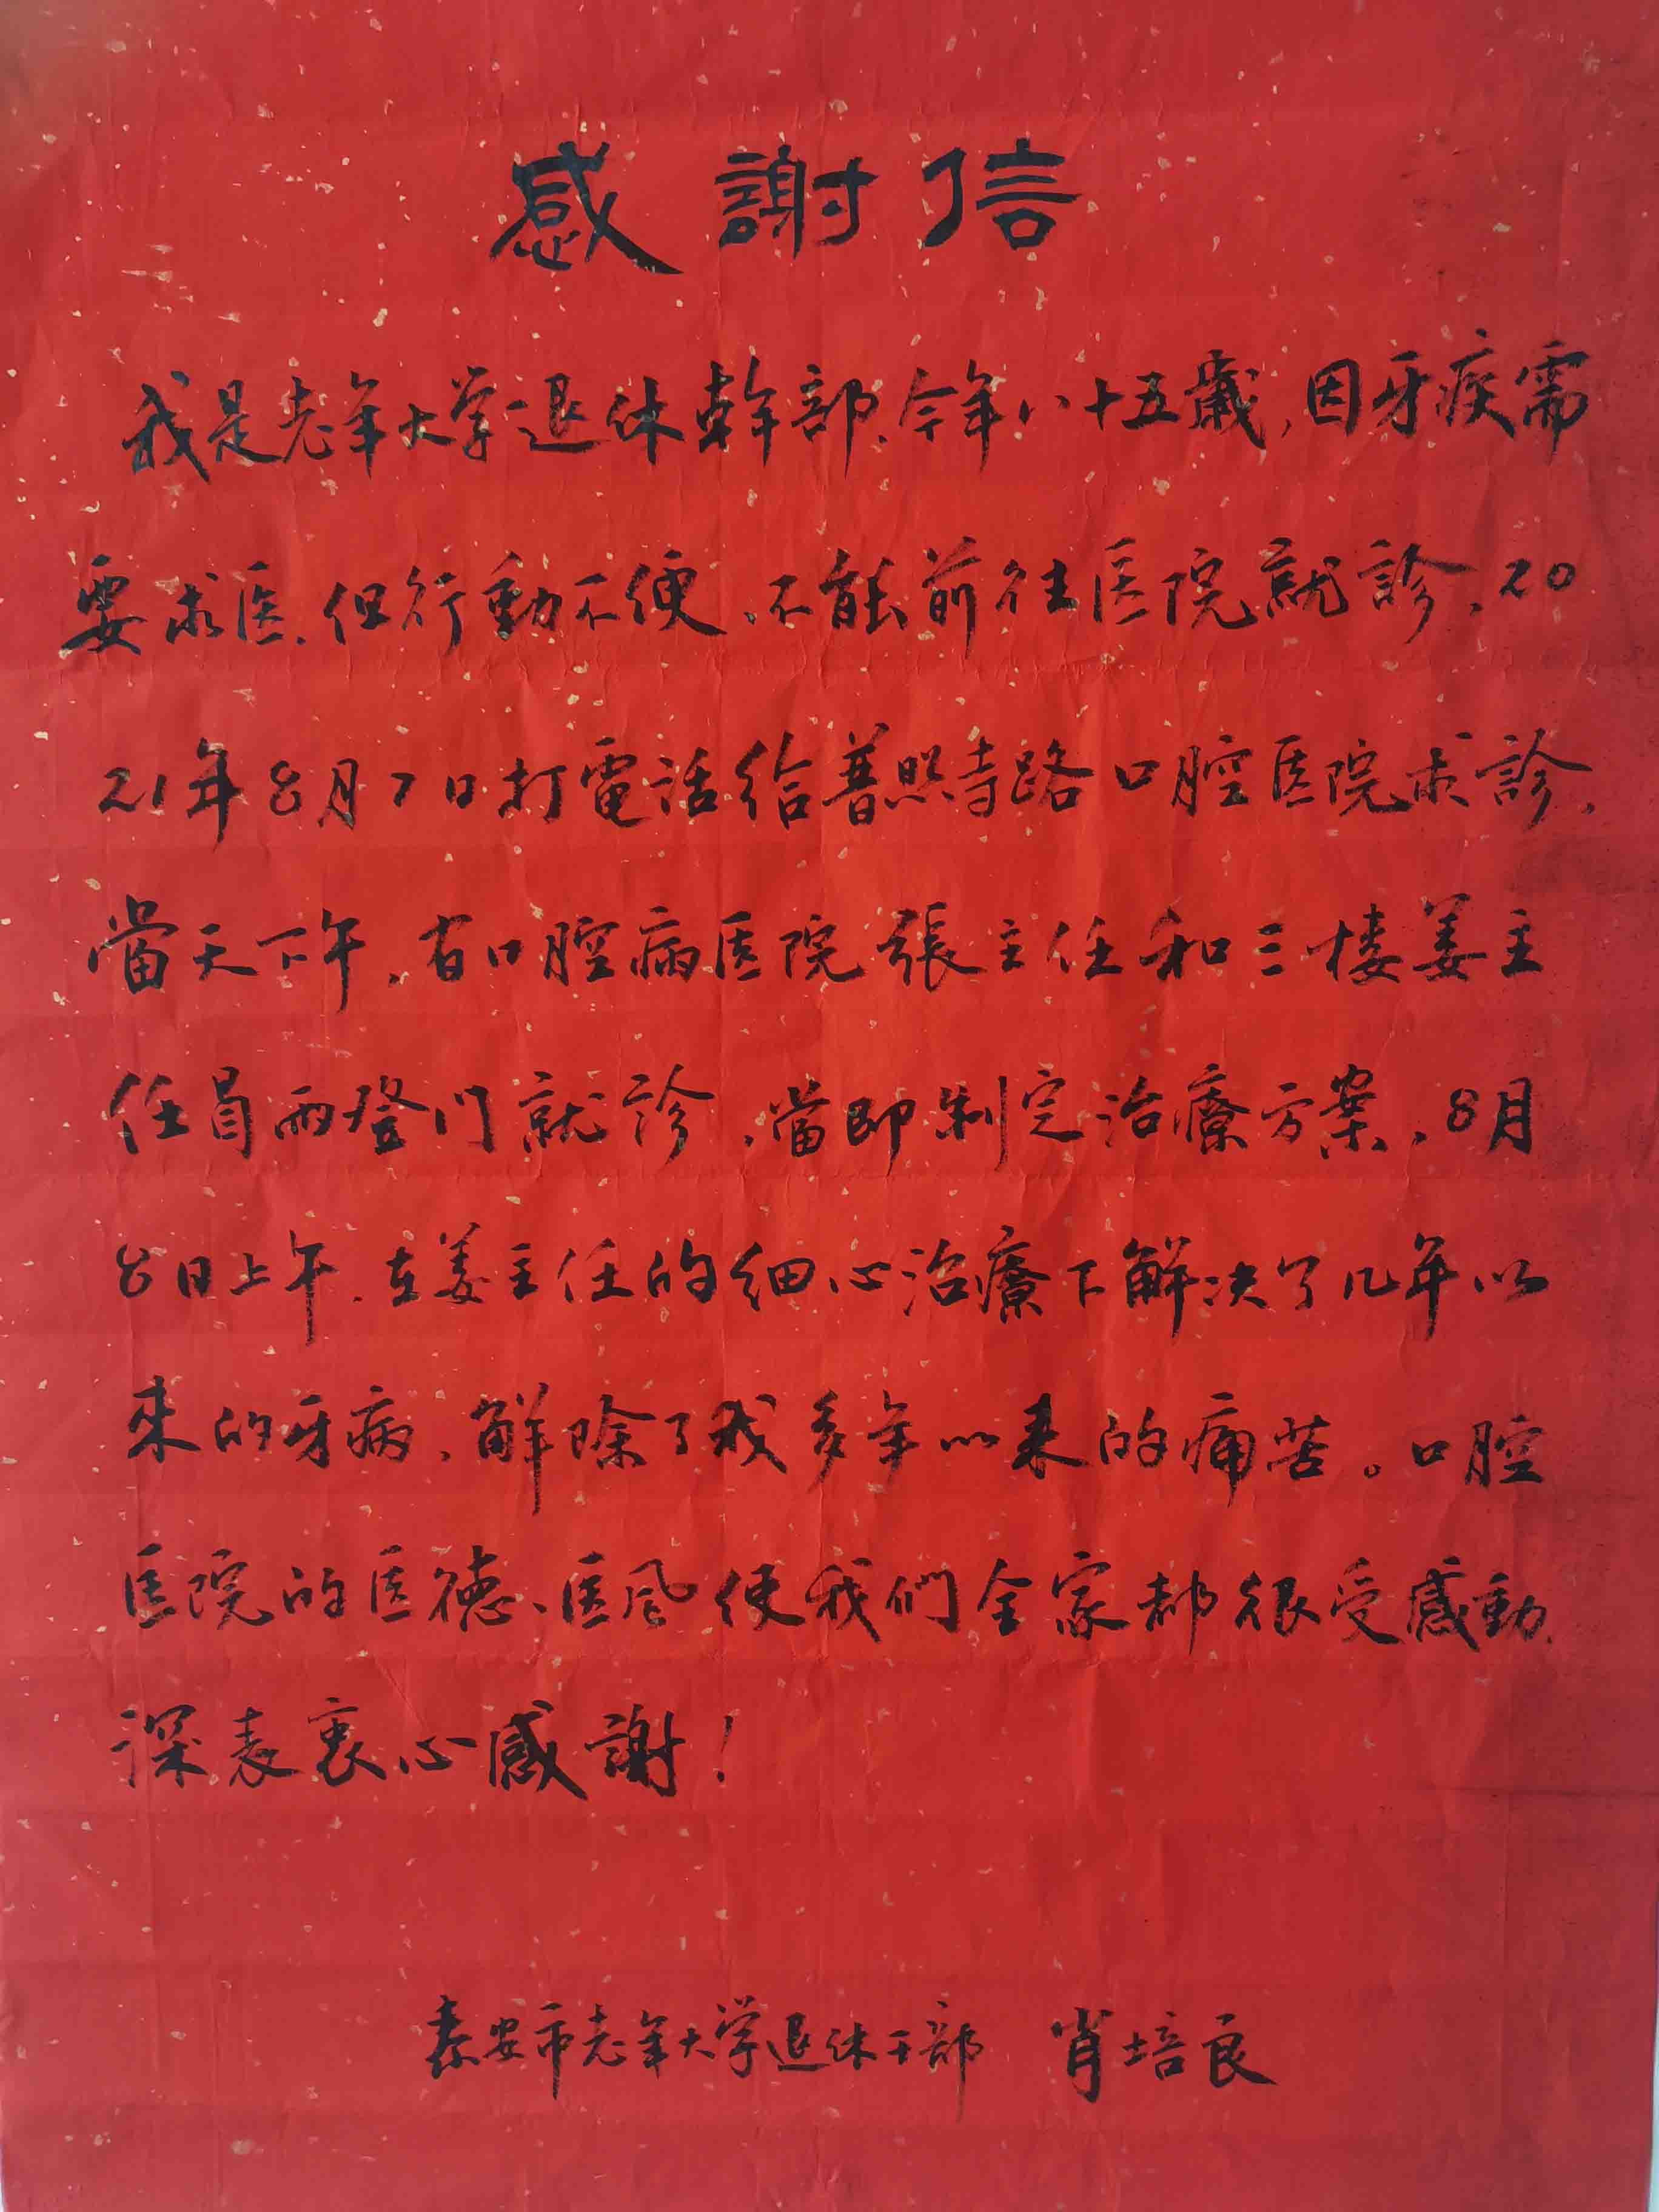 感謝信
我是老年大学退休幹部、今年八十五歲,因牙疾需
要求医、但行動不便、不能前往医院就診、20
21年8月7日打電话给普照寺路口腔医院求診、
當天下午、有口腔病医院張主任和三楼姜主
任冒雨登门就诊、當即制定治療方案、8月
8日上午、在姜主任的细心治療下解决了几年以
來的牙病、解除了我多年以来的痛苦。口腔
医院的医德、医风使我们全家都很受感動、
深表衷心感謝!
泰安市老年大学退休干部 肖培良